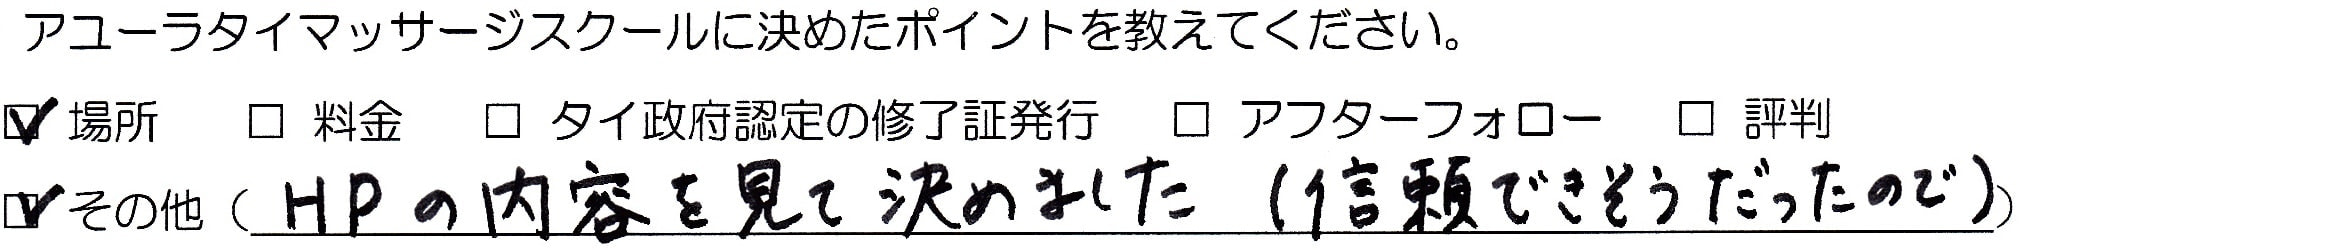 アユーラタイマッサージスクールに決めたポイントを教えてください。
☑ 場所 □ 料金 □ タイ政府認定の修了証発行 □ アフターフォロー □ 評判
☑ その他（HPの内容を見て決めました（信頼できそうだったので））